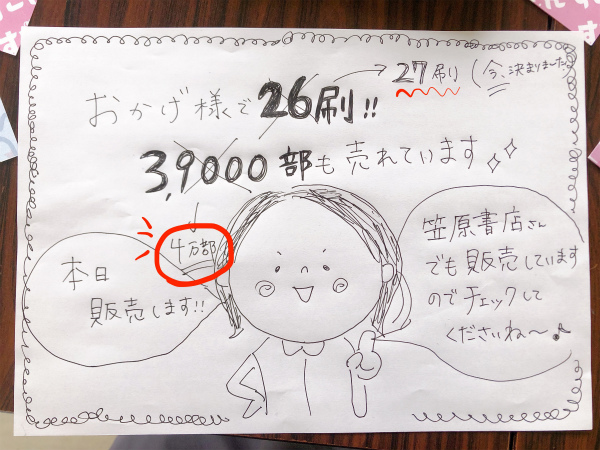 おかげ様で26刷!!
27刷り(今、決まりました)
3,9000部も売れています
4万部
本日
販売します!!
笠原書店さん
でも販売しています
のでチェックして
くださいね〜♪